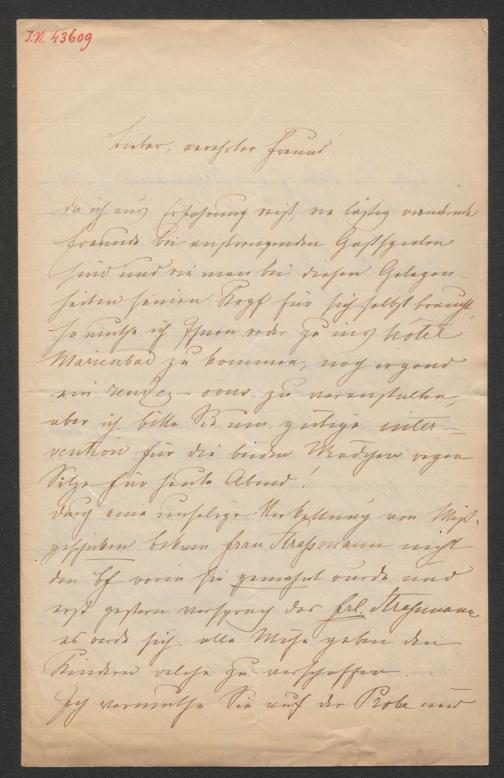 I.N. 43609
Lieber, verehrter Freund!
da ich aus Erfahrung weiß, wie lästig
Freunde bei anstrengenden Gastspielen
sind und wie man bei diesen Gelegen-
heiten seinen Kopf für sich selbst braucht,
so muthe ich Ihnen weder zu ins Hotel
Marienbad zu kommen, noch irgend
ein rendez-vous zu veranstalten
aber ich bitte Sie um gütige inter-
vention für die beiden Mädchen wegen
Sitze für heute Abend!
Durch eine unselige Verkettung von Miß-
geschicken bekam Frau Straßmann nicht
den Bf worin sie gemahnt wurde und
erst gestern versprach das Frl. Straßmann
es werde sich alle Mühe geben den
Kindern welche zu verschaffen.
Ich vermuthe Sie auf der Probe und